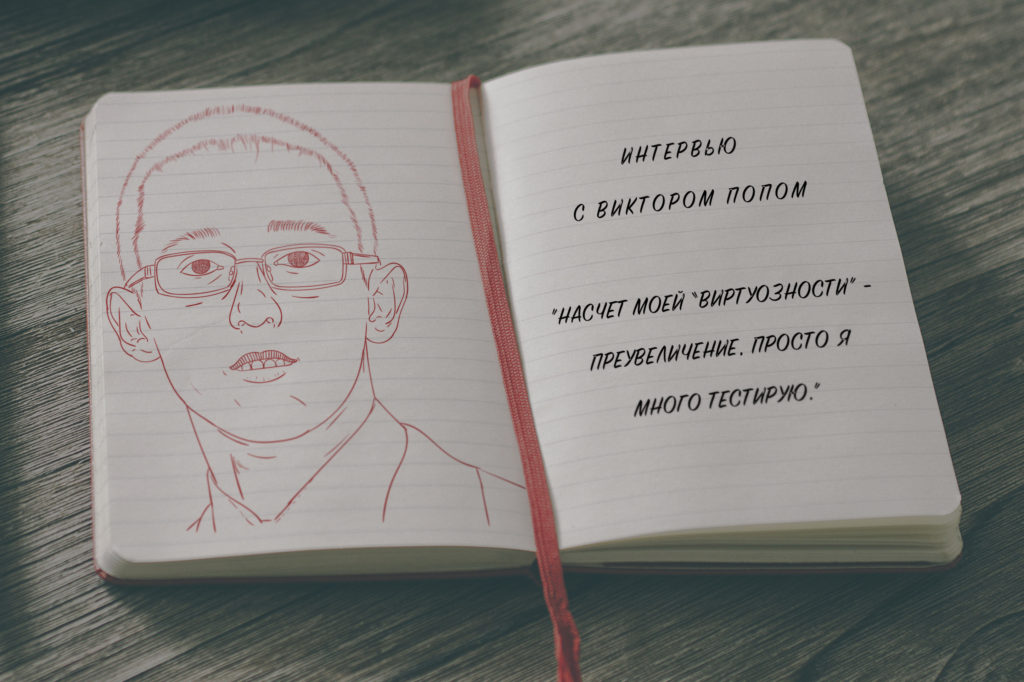 ИНТЕРВЬЮ
С ВИКТОРОМ ПОПОМ
"НАСЧЕТ МОЕЙ "ВИРТУОЗНОСТИ" -
ПРЕУВЕЛИЧЕНИЕ. ПРОСТО Я
МНОГО ТЕСТИРУЮ."